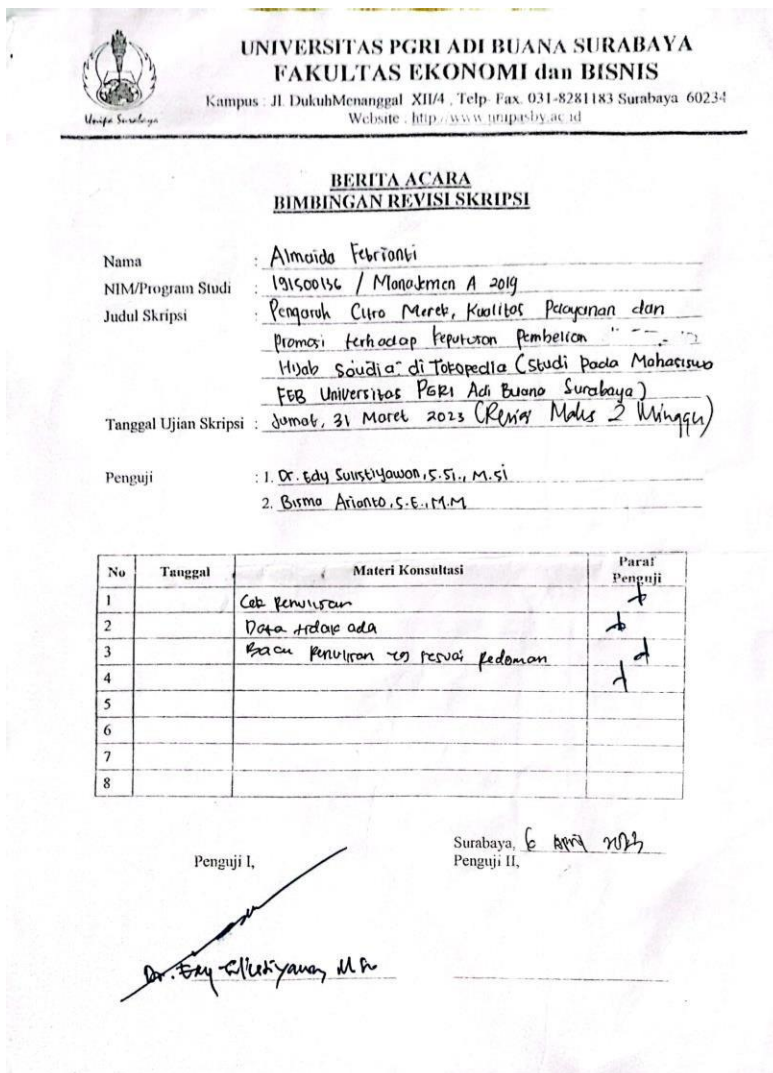 UNIVERSITAS PGRI ADI BUANA SURABAYA
FAKULTAS EKONOMI dan BISNIS
Kampus : Jl. DukuhMenanggal XII/4 , Telp- Fax. 031-8281183 Surabaya 60234
Website : http://www.unipasby.ac.id
Unipa Surabaya
BERITA ACARA
BIMBINGAN REVISI SKRIPSI
Nama : Almaida Febrianti
NIM/Program Studi : 191500136 / Manajemen A 2019
Judul Skripsi : Pengaruh Citra Merek, Kualitas Pelayanan dan
Promosi terhadap keputusan Pembelian "
Hijab Saudia" di Tokopedia (Studi pada Mahasiswa
FEB Universitas PGRI Adi Buana Surabaya)
Tanggal Ujian Skripsi : Jumat, 31 Maret 2023 (Revisi Maks 2 Minggu)
Penguji : 1. Dr. Edy Sulistiyawan, S.Si., M.Si
2. Bisma Arianto, S.E., M.M
No Tanggal Materi Konsultasi Paraf Penguji
1 Cek Penulisan
2 Data tidak ada
3 Baca Penulisan yg sesuai pedoman
4
5
6
7
8
Surabaya, 6 April 2023
Penguji I, Penguji II,
Dr. Edy Sulistiyawan, M.Si